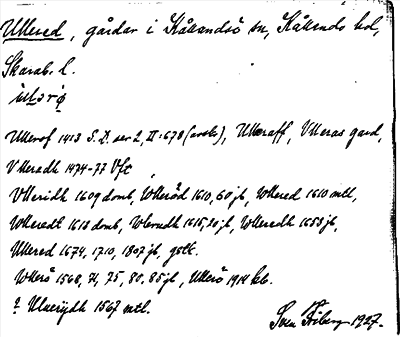 Ullered, gårdar i Kållandsö sn, Kållands hd,
Skarab. l.
Ullerof 1413 S.D. ser 2, II:678 (avskr), Ulleraff, Vlleras gard,
Vlleredh 1474-77 Vft
Vlleridh 1609 domb, Wlleröd 1610, 60 jb, Wllered 1610 mtl,
Wlleredt 1618 domb, 1615, 20 jb, Wlleredh 1653 jb,
Ullered 1674, 1710, 1807 jb, gstk.
Wllerö 1568, 71, 75, 80, 85 jb, Ullerö 1914 kb.
? 1567 mtl.
Sven 1927.